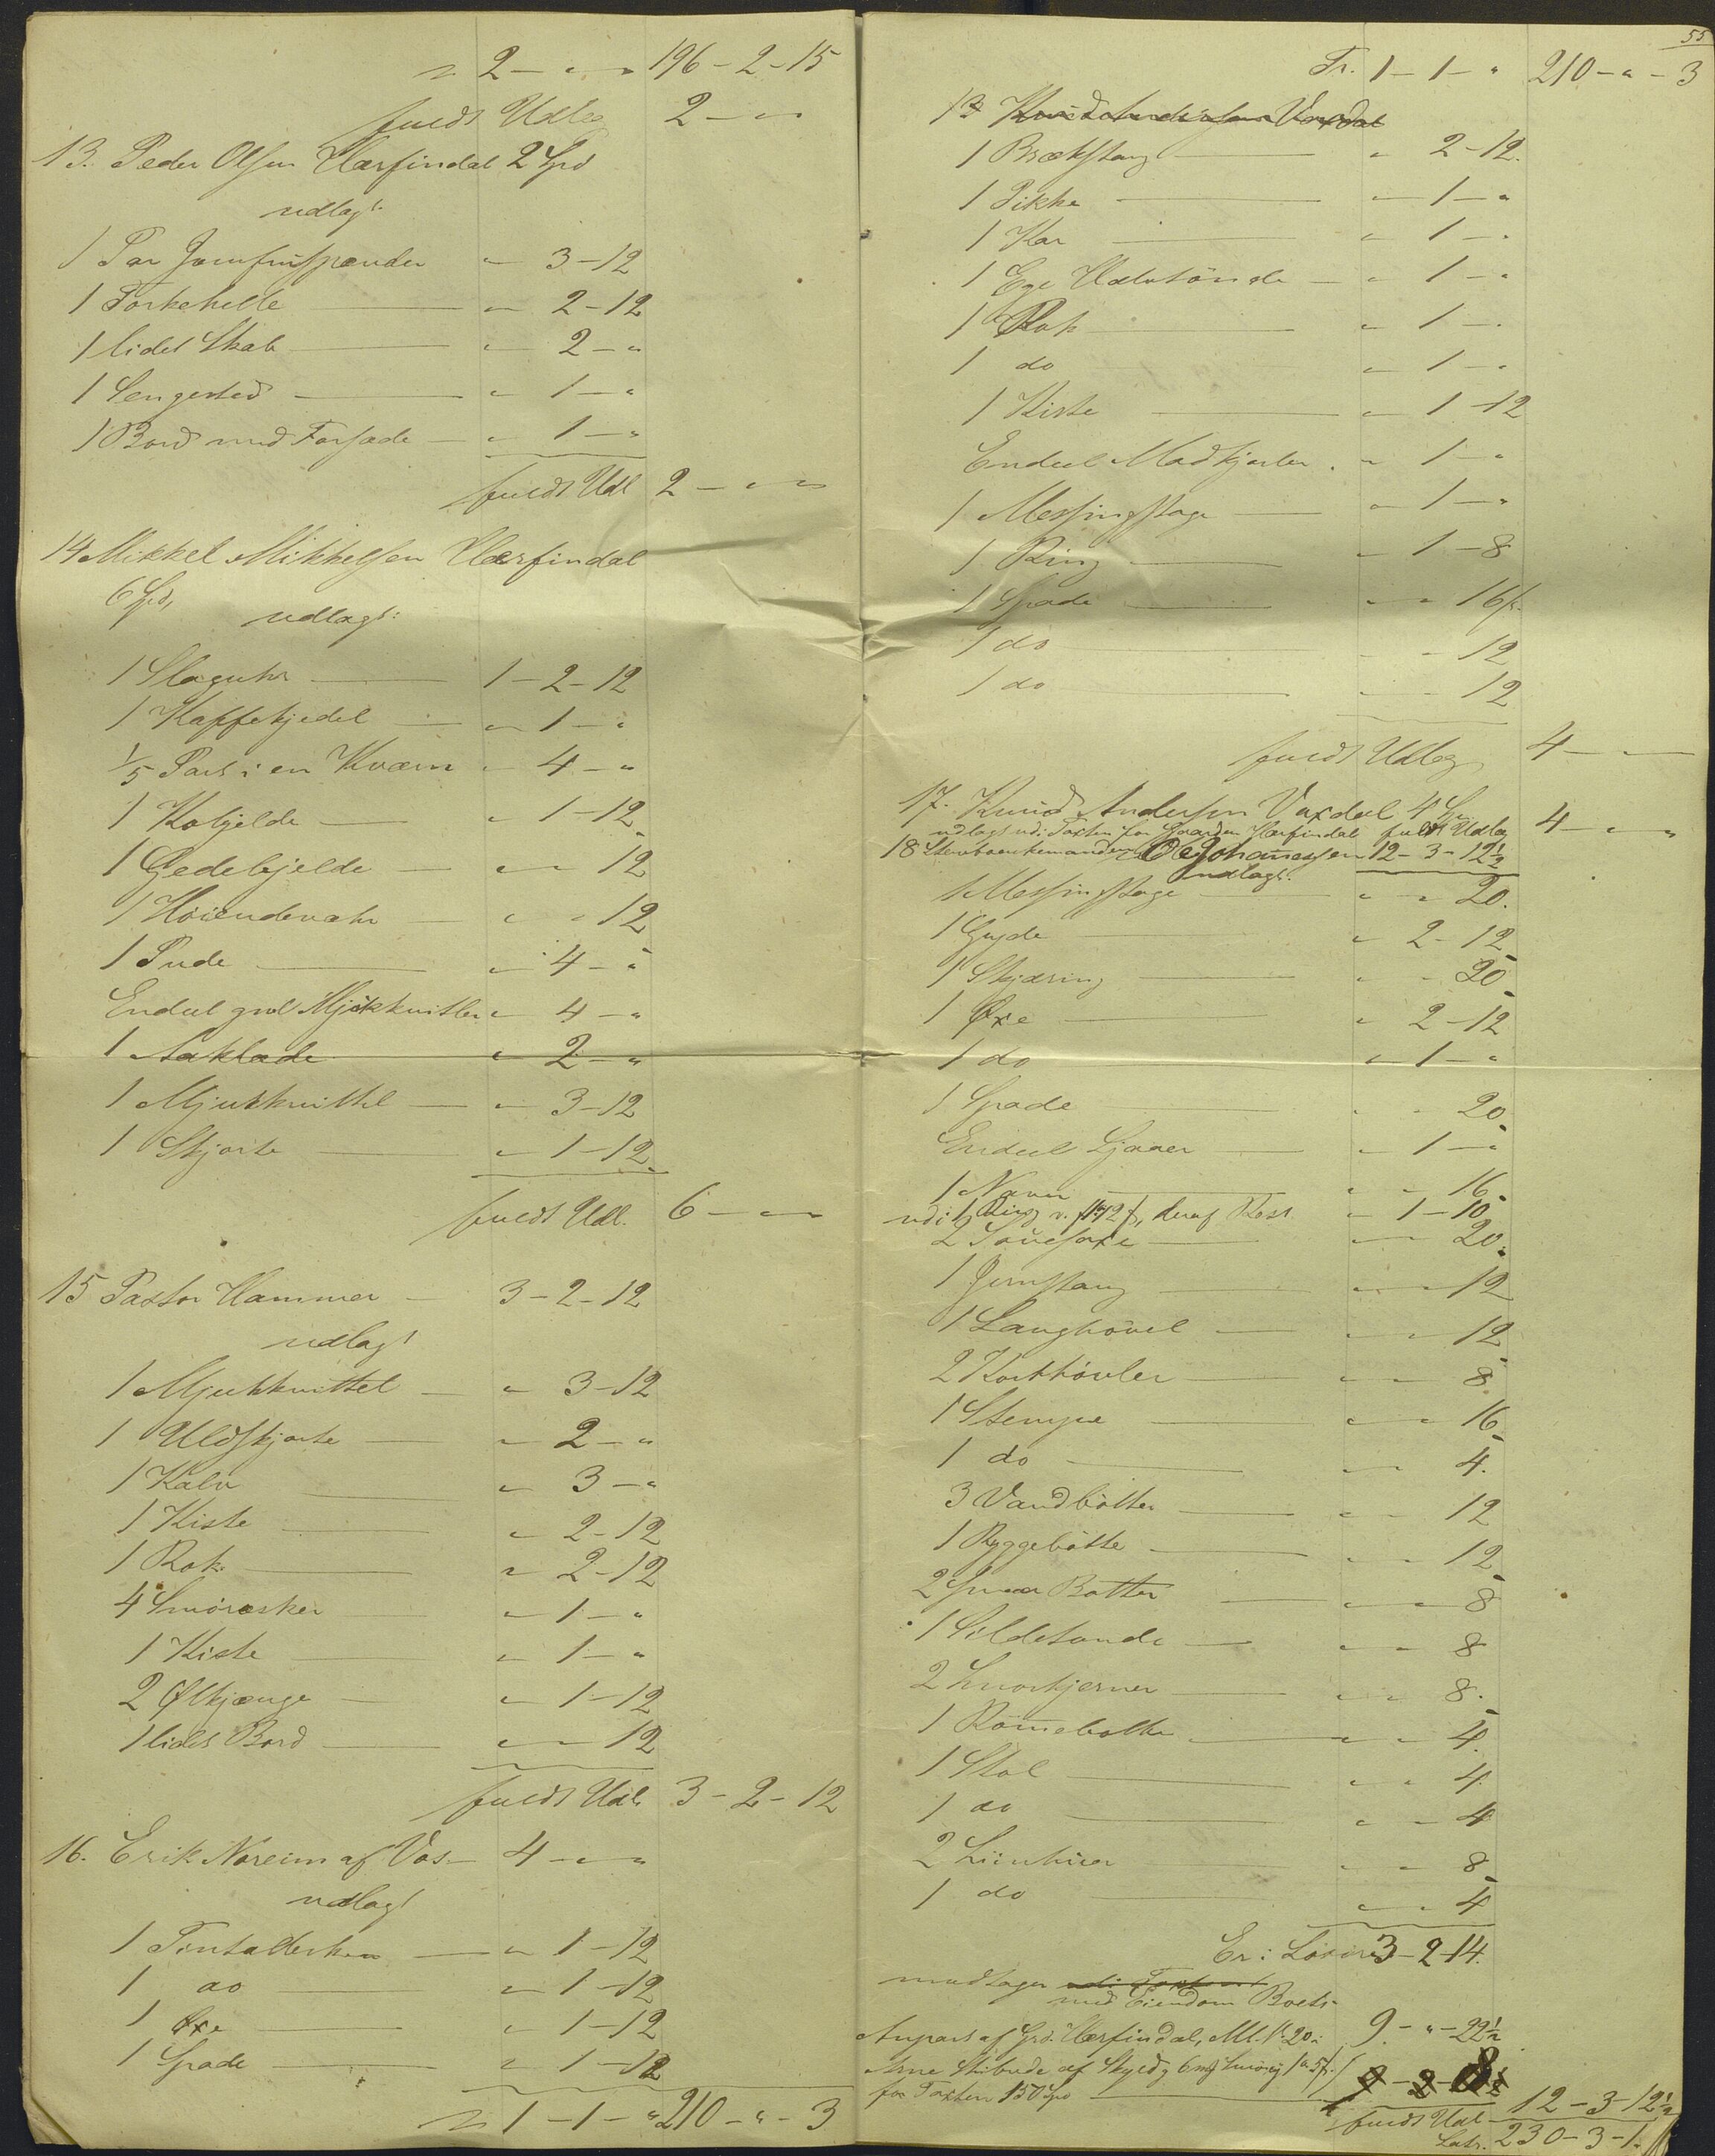 2 - " - " 196 - 2 - 15
fuldt Udlæg 2 - " - "
13. Peder Olsen Herfindal 2 Spd
udlagt:
1 Par Jomfruspænder " 3 - 12
1 Torkehelle " 2 - 12
1 lidet Skab " 2 - "
1 Sengested " 1 - "
1 Bord med Forsæde " 1 - "
fuldt Udl 2 - " - "
14 Mikkel Mikkelsen Herfindal
6 Spd,
udlagt:
1 Slaguhr 1 - 2 - 12
1 Kaffekjedel " 1 - "
1/5 Part i en Kværn " 4 - "
1 Kobjelde " 1 - 12
1 Gedebjelde " " 12
1 Höiendevahr " " 12
1 Pude " 4 - "
Endeel grel Mjökkvitler " 4 - "
1 Aaklade " 2 - "
1 Mjukkvittel " 3 - 12
1 Skjorte " 1 - 12
fuldt Udl. 6 - " - "
15 Pastor Hammer 3 - 2 - 12
udlagt
1 Mjukkvittel " 3 - 12
1 Uldskjorte " 2 - "
1 Kalv " 3 - "
1 Kiste " 2 - 12
1 Rok " 2 - 12
4 Smöræsker " 1 - "
1 Kiste " 1 - "
2 Ølkjænge " 1 - 12
1 lidet Bord " " 12
fuldt Udl. 3 - 2 - 12
16. Erik Noreim af Vos 4 - " - "
udlagt
1 Tintallerken " 1 - 12
1 do " 1 - 12
1 Øxe " 1 - 12
1 Spade " 1 - 12
1 - 1 - " 210 - " - 3
55
Tr. 1 - 1 - " 210 - " - 3
17 Knud Andersen Vaxdal
1 Brækstang " 2 - 12
1 Pikke " 1 - "
1 Kar " 1 - "
1 Ege Halvtönde " 1 - "
1 Rok " 1 - "
1 do " 1 - "
1 Kiste " 1 - 12
Endeel Madkjerler " 1 - "
1 Messingstage " 1 - "
1 Ring " 1 - 8
1 Spade " " 16
1 do " " 12
1 do " " 12
fuldt Udlæg 4 - " - "
17. Knud Andersen Vaxdal 4 Spd
udlagt udi Taxten for Gaarden Herfindal fuldt Udlæg 4 - " - "
18 Ole Johannessen 12 - 3 - 12½
udlagt:
1 Messingstage " " 20.
1 Gryde " 2 - 12
1 Skjæring " " 20
1 Øxe " 2 - 12
1 do " 1 - "
1 Spade " " 20
Endeel Ljaaer " 1 - "
1 Naver " " 16
udi 1 Ring v. 1-12 ß, deraf Rest " 1 - 10
2 Sauesaxe " " 20
1 Jernstang " " 12
1 Langhövel " " 12
2 Korthövler " " 8
1 Stempe " " 16
1 do " " 4.
3 Vandbötter " " 12
1 Ryggebötte " " 12
2 smaa Bötter " " 8
1 Sildetønde " " 8
2 Smørkjerner " " 8
1 Römmebøtte " " 4
1 Stol " " 4
1 do " " 4
2 " " 8
1 do " " 4
Er: Lösöre 3 - 2 - 14.
modtager udi Taxten
med Eiendom Boets
Anpart af Grd. Herfindal, Ml. No 20: 9 - " - 22½
Arne Stibrude af Skyld 6 mrk Smør
for Taxten 150 Spd
fuldt Udl 12 - 3 - 12½
Latr. 230 - 3 - 1